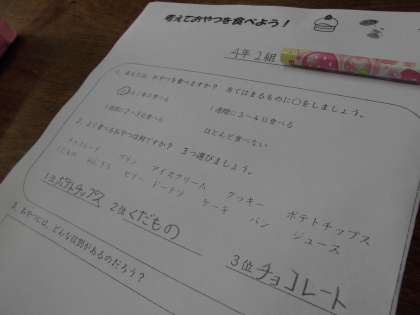 考えておやつを食べよう！
4年2組
1. あなたは、おやつを食べますか？ あてはまるものに○をしましょう。
1週間に3〜4日食べる
ほとんど食べない
2. よく食べるおやつは何ですか？ 3つ選びましょう。
プリン アイスクリーム クッキー ポテトチップス
ゼリー ドーナツ ケーキ パン ジュース
1位 ポテトチップス 2位 くだもの
3位 チョコレート
3. おやつには、どんな役割があるのだろう？